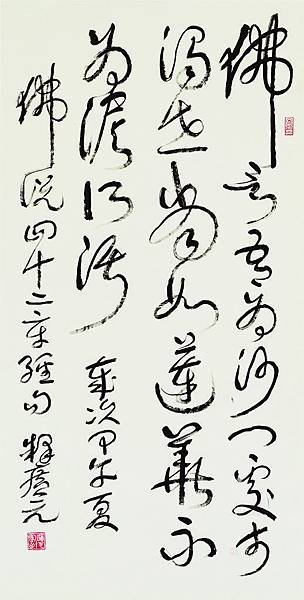 佛言吾為沙門處於
濁世當如蓮華不
為泥所污 歲次甲午夏
佛說四十二章經句 釋廣元